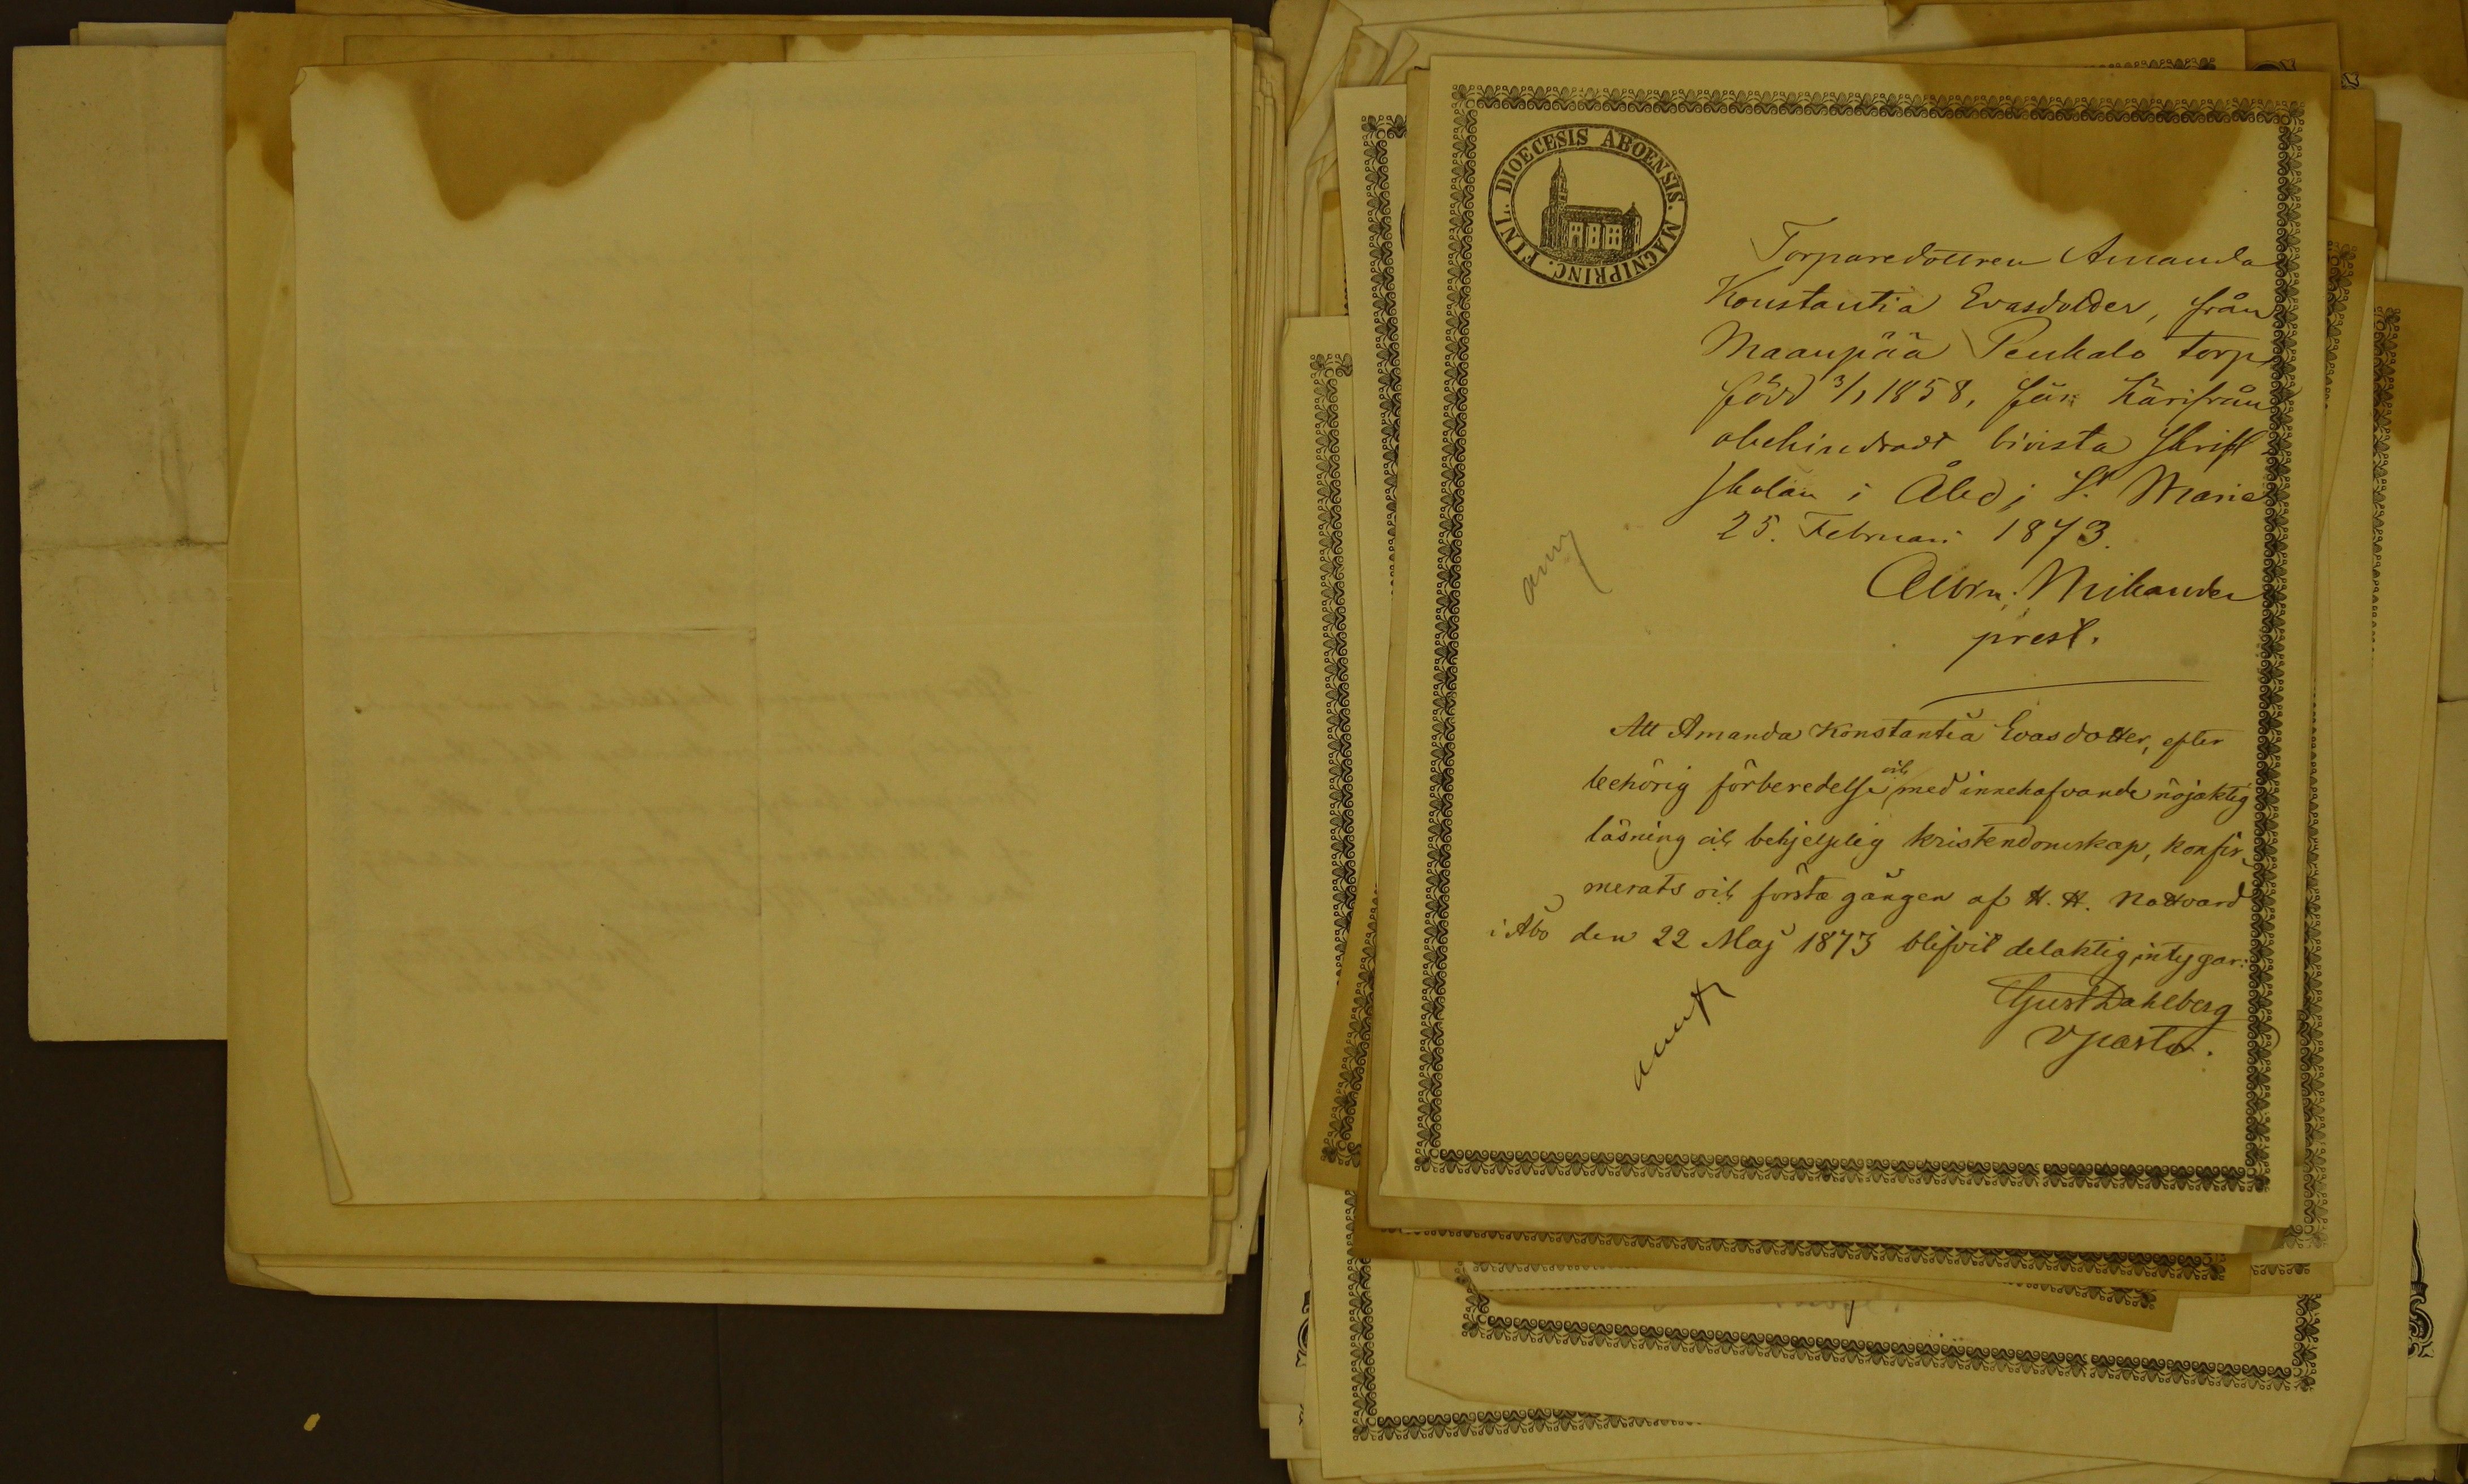 FINL. DIOECESIS ABOENSIS. MAGNIPRINC.
Torparedottren Amanda
Konstantia Evasdotter, från
Maanpää Penkalo torp,
född 3/1 1858, får härifrån
obehindradt bivista skrift
skolan i Åbo; S:t Marie
25. Februari 1873.
Albin. Mikander
prest.
Att Amanda Konstantia Evasdotter, efter
behörig förberedelse och med innehafvande nöjaktig
läsning och behjelplig kristendomskap, konfir
merats och första gången af H. H. Nattvard
i Åbo den 22 Maj 1873 blifvit delaktig, intygar:
Gust Dahlberg
v pastor.